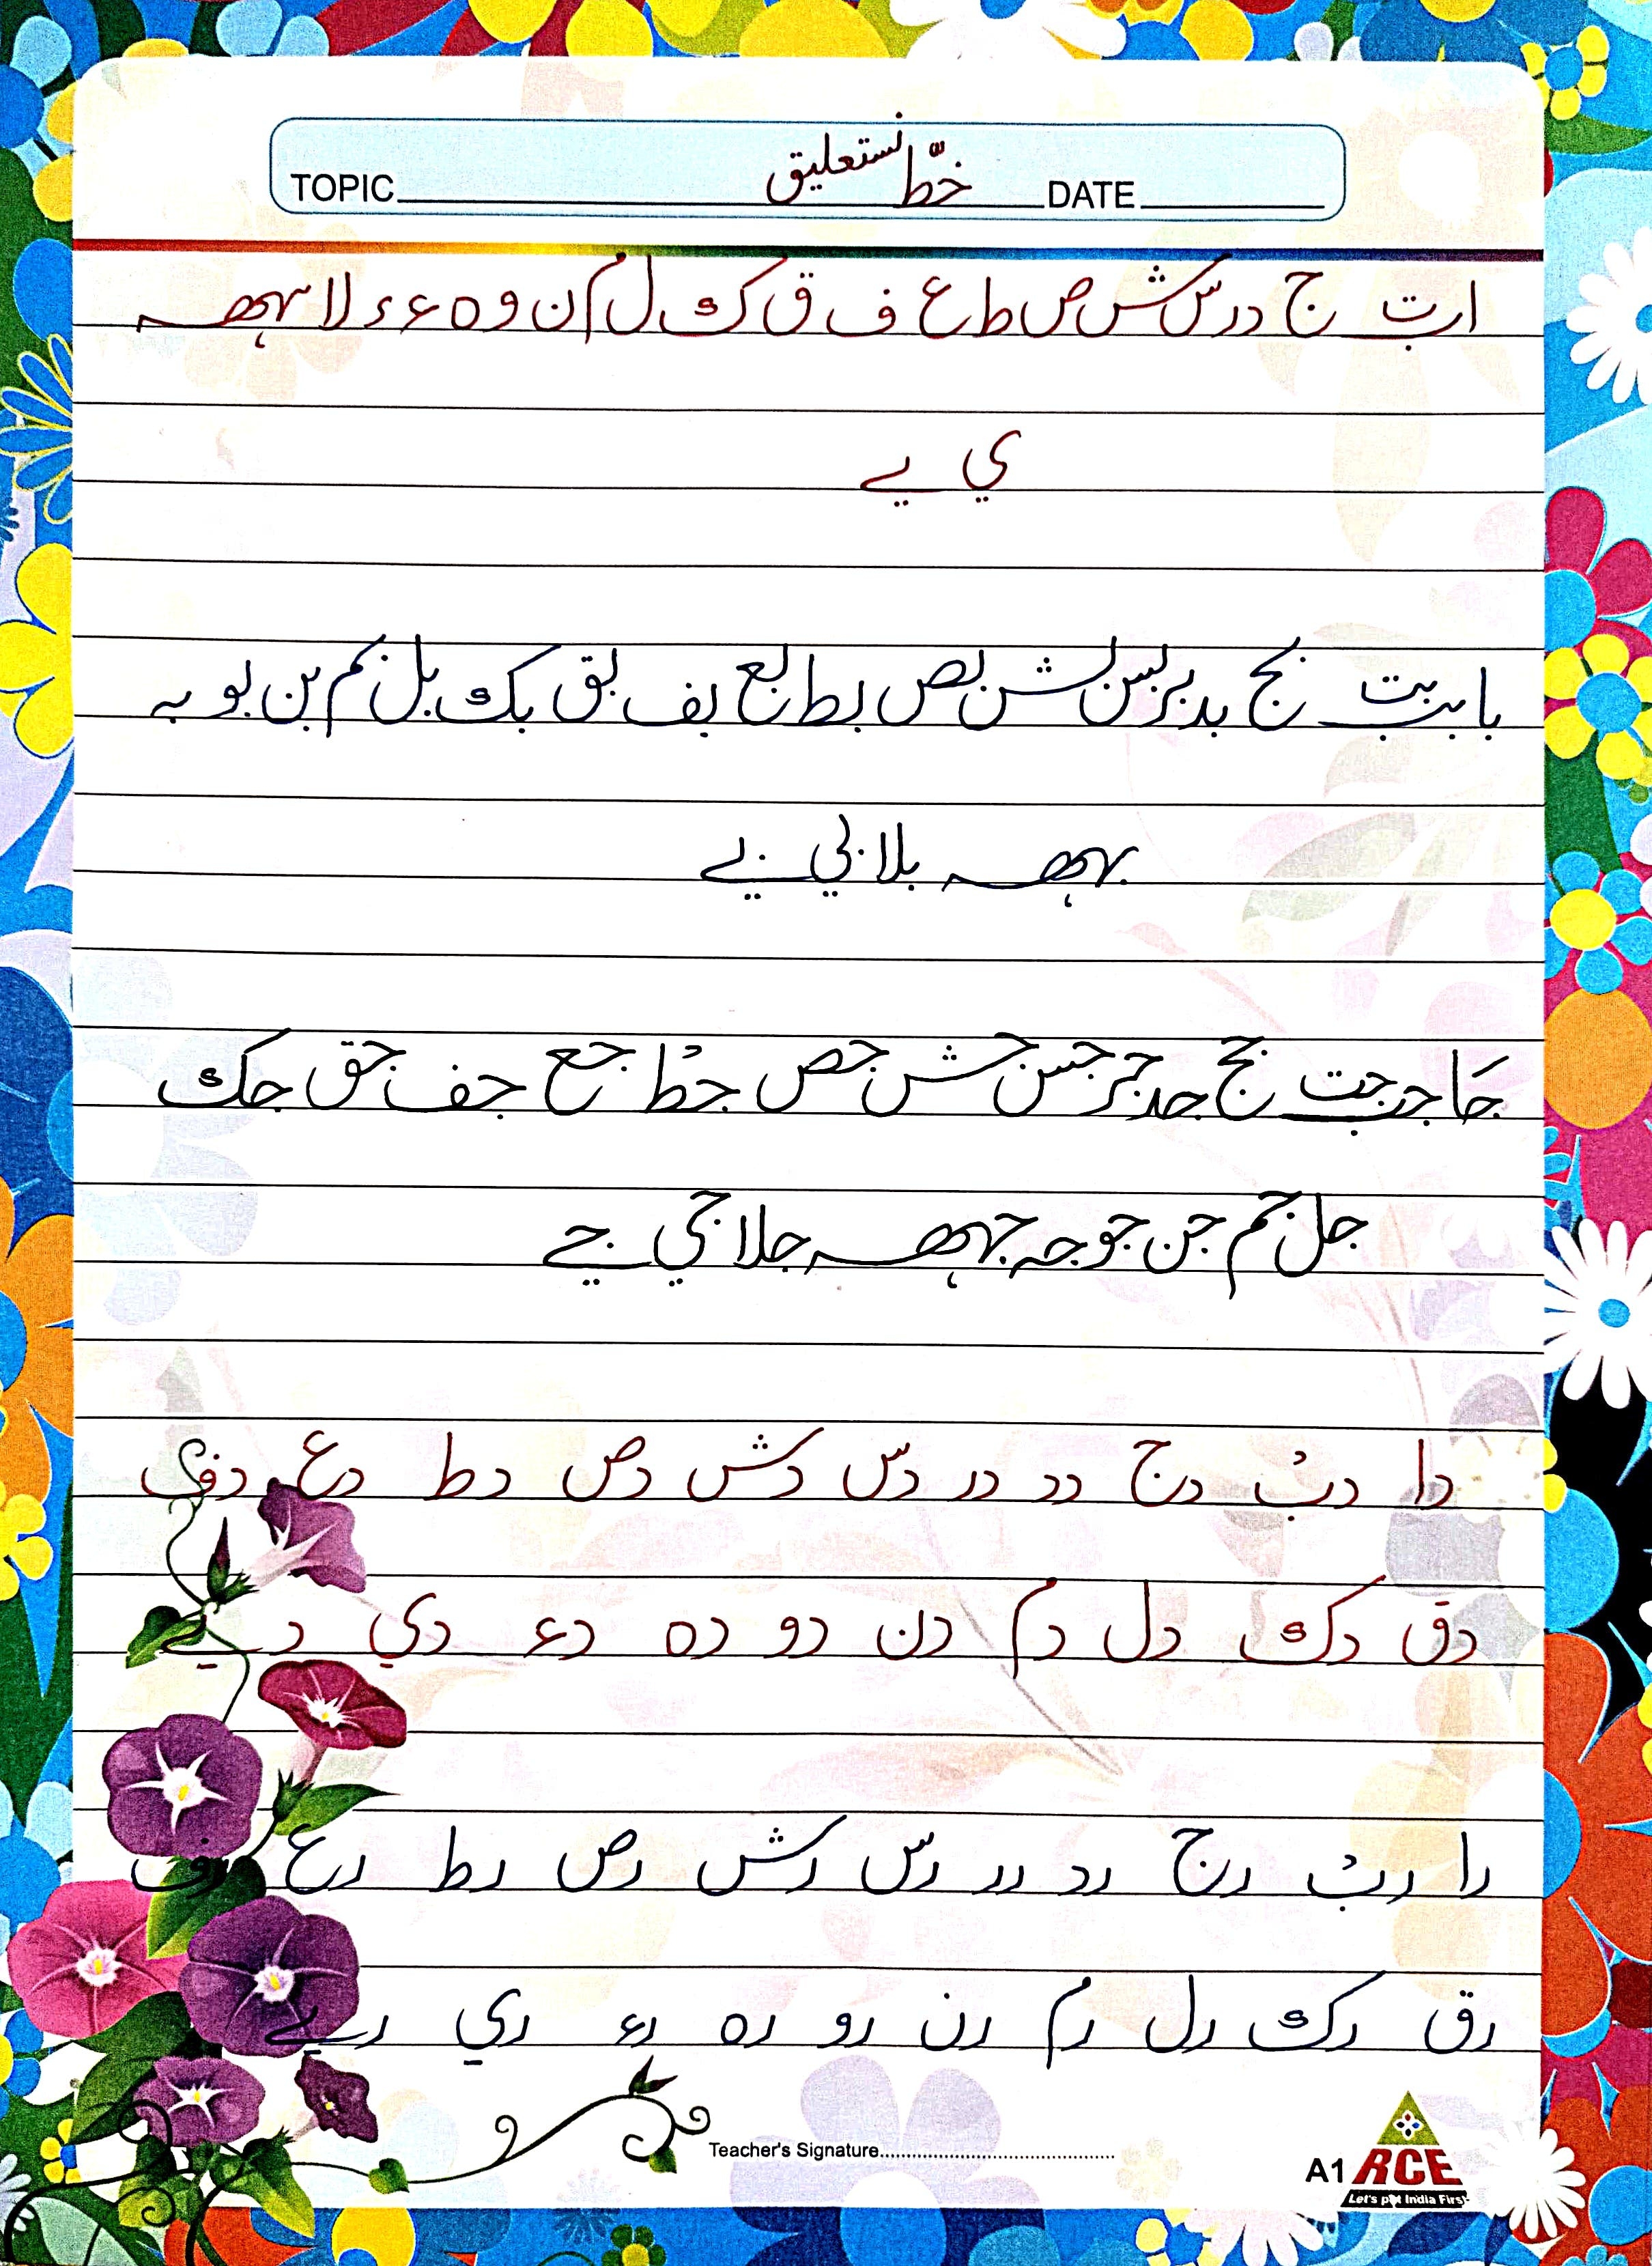 TOPIC خطِّ نستعلیق DATE
ا ب ت ج د ر س ش ص ط ع ف ق ک ل م ن و ہ ء ء لا بھہ
ي یے
با بب بت بج بد بر بس بش بص بط بع بف بق بک بل بم بن بو بہ
بھہ بلا بي بے
جا جب جت جج جد جر جس جش جص جط جع جف جق جک
جل جم جن جو جہ جھہ جلا جي جے
دا دب دج دد در دس دش دص دط دع دف
دق دک دل دم دن دو دہ دء دي دیے
را رب رج رد رر رس رش رص رط رع رف
رق رک رل رم رن رو رہ رء ري ریے
Teacher's Signature
A1 RCE
Let's put India First